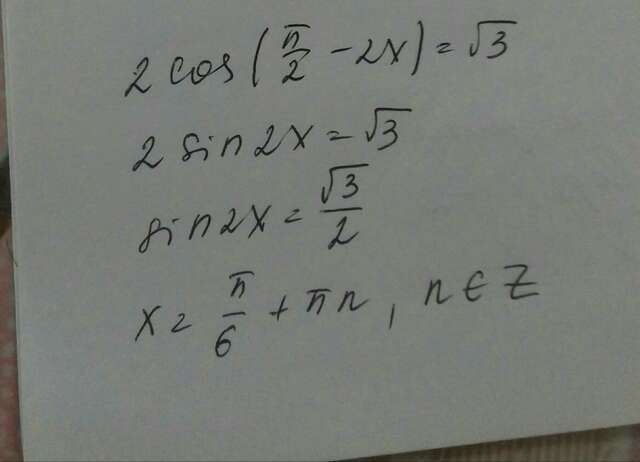 2 cos(π/2 - 2x) = √3
2 sin 2x = √3
sin 2x = √3/2
x = π/6 + πn, n ∈ Z